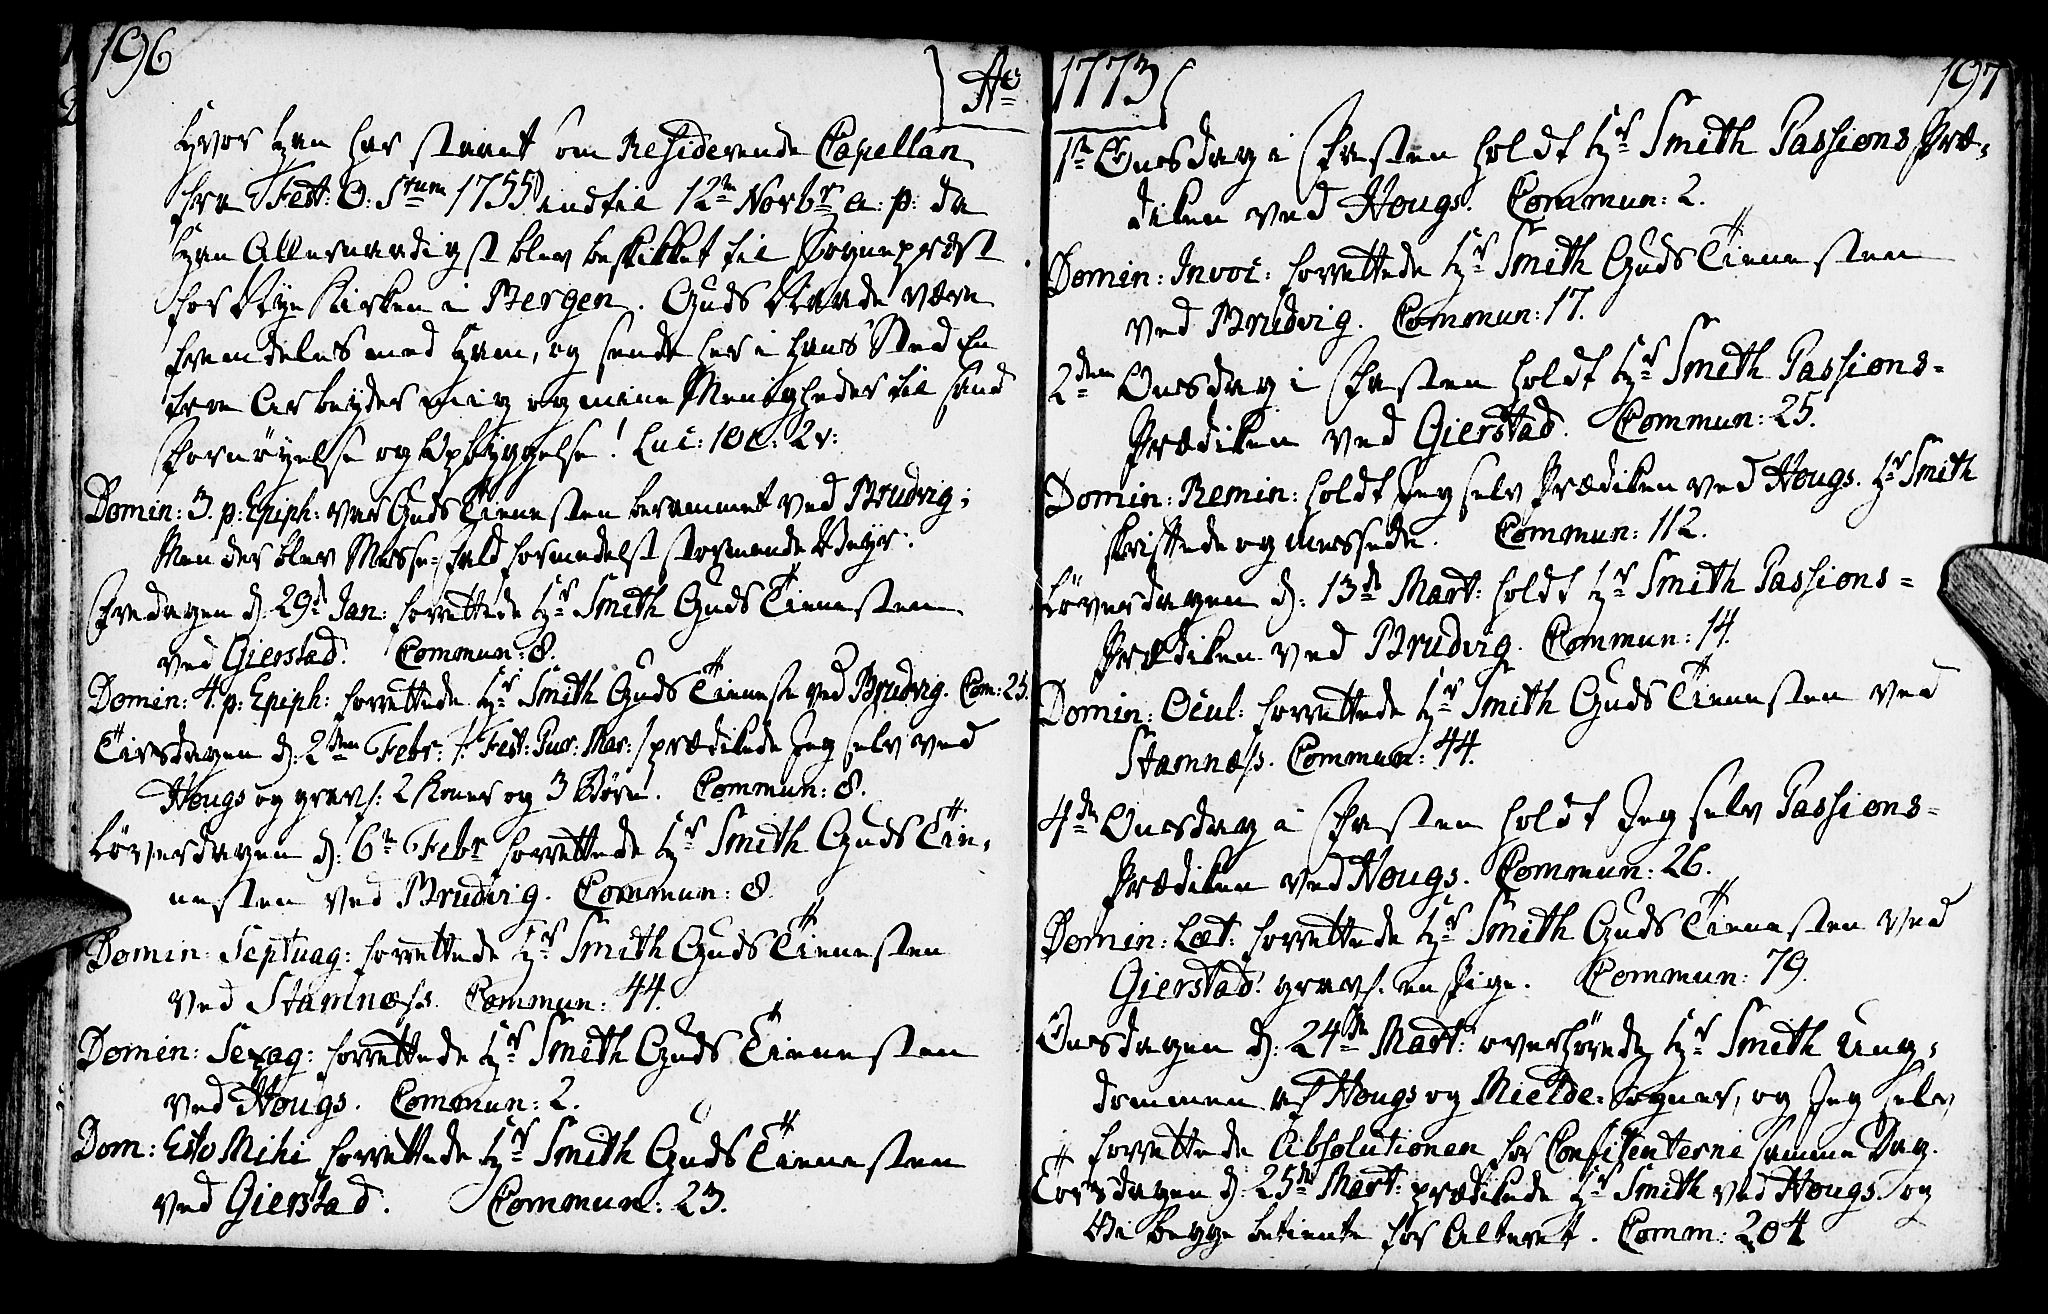 196
Ao
hvor han har staaet som Residerende Capellan
fra Fest: O: Srum 1755 indtil 12te Novbr a: p: da
han Allernaadigst blev beskikket til Sognepræst
for Nye Kirken i Bergen. Guds Naade være
fremdeles med ham, og sende her i hans Sted en
troe Arbeyder mig og mine Menigheder til sand
Fornøyelse og Opbyggelse! Luc: 10 c: 2 v:
Domin: 3. p: Epiph: var Guds Tienesten berammet ved Brudvig;
Men der blev Messe-fald formedelst stormende Veyr.
Fredagen d: 29de Jan: forrettede Hr Smith Guds Tienesten
ved Gierstad. Commun: 8.
Domin: 4. p: Epiph: forrettede Hr Smith Guds Tieneste ved Brudvig. Com: 25.
Tirsdagen d: 2den Febr: /: Fest: Pur: Mar: / prædikede Jeg selv ved
Hougs og gravf: 2 Koner og 3 Børn. Commun: 8.
Løverdagen d: 6te Febr forrettede Hr Smith Guds Tie-
nesten ved Brudvig. Commun: 8.
Domin: Septuag: forrettede Hr Smith Guds Tienesten
ved Stamnæss. Commun: 44.
Domin: Sexag: forrettede Hr Smith Guds Tienesten
ved Hougs. Commun: 2.
Dom: Esto Mihi forrettede Hr Smith Guds Tienesten
ved Gierstad. Commun: 23.
1773
197
1te Onsdag i Fasten holdt Hr Smith Passions Præ-
diken ved Hougs. Commun: 2.
Domin: Invoc: forrettede Hr Smith Guds Tienesten
ved Brudvig. Commun: 17.
2den Onsdag i Fasten holdt Hr Smith Passions-
Prædiken ved Gierstad. Commun: 25.
Domin: Remin: holdt Jeg selv Prædiken ved Hougs. Hr Smith
skriftede og messede. Commun: 112.
Løverdagen d: 13de Mart: holdt Hr Smith Passions-
Prædiken ved Brudvig. Commun: 14.
Domin: Ocul: forrettede Hr Smith Guds Tienesten ved
Stamnæss. Commun: 44.
4de Onsdag i Fasten holdt Jeg selv Passions-
Prædiken ved Hougs. Commun: 26.
Domin: Læt: forrettede Hr Smith Guds Tienesten ved
Gierstad. gravf: en Pige. Commun: 79.
Onsdagen d: 24de Mart: overhørede Hr Smith Ung-
dommen af Hougs og Mielde-Sogner, og Jeg selv
forrettede Absolutionen for Confitenterne samme Dag.
Torsdagen d: 25de Mart: prædikede Hr Smith ved Hougs og
Vi begge betiente for Alteret. Comm: 204